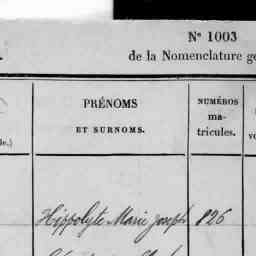 N° 1003
de la Nomenclature gé
PRÉNOMS
ET SURNOMS.
NUMÉROS
ma-
tricules.
le.)
Hippolyte Marie Joseph 826